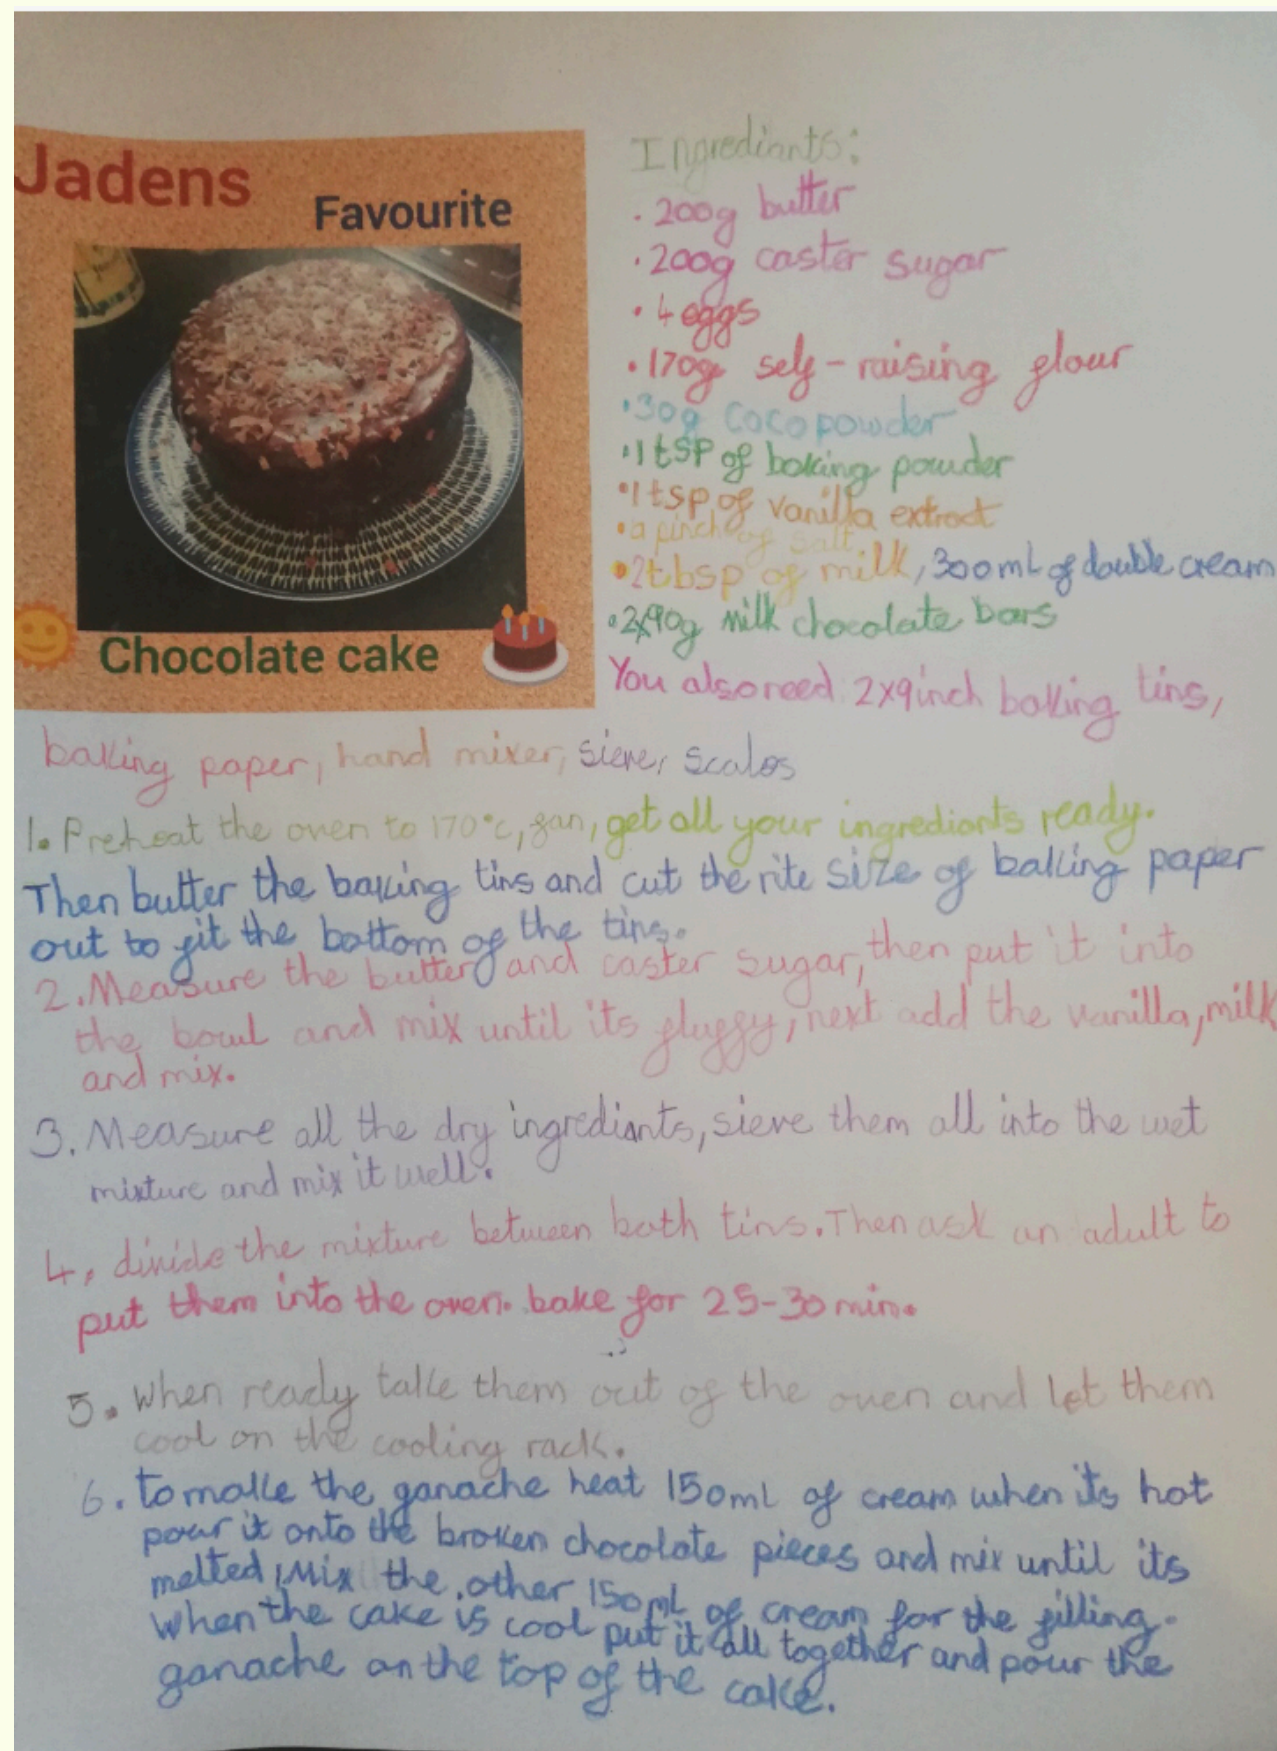 Jadens
Favourite
Chocolate cake
Ingrediants:
· 200g butter
· 200g caster sugar
· 4 eggs
· 170g self-raising flour
· 30g Coco powder
· 1 tsp of baking powder
· 1 tsp of vanilla extract
· a pinch of salt
· 2tbsp of milk, 300ml of double cream
· 2x90g milk chocolate bars
You also need 2x9inch baking tins,
baking paper, hand mixer, sieve, scales
1. Preheat the oven to 170°c, fan, get all your ingrediants ready.
Then butter the baking tins and cut the rite size of baking paper
out to fit the bottom of the tins.
2. Measure the butter and caster sugar, then put it into
the bowl and mix until its fluffy, next add the vanilla, milk
and mix.
3. Measure all the dry ingrediants, sieve them all into the wet
mixture and mix it well.
4, divide the mixture between both tins. Then ask an adult to
put them into the oven. bake for 25-30 min.
5. When ready take them out of the oven and let them
cool on the cooling rack.
6. to make the ganache heat 150ml of cream when its hot
pour it onto the broken chocolate pieces and mix until its
melted, Mix the other 150ml of cream for the filling.
When the cake is cool put it all together and pour the
ganache on the top of the cake.